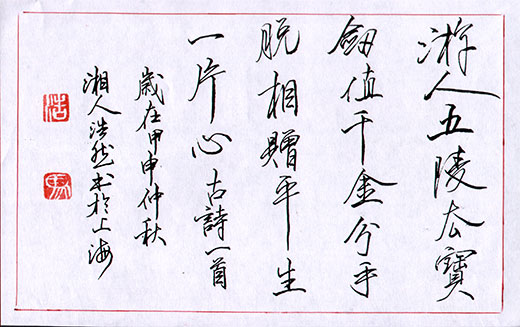 游人五陵去寶
劒值千金分手
脱相贈平生
一片心古詩一首
歲在甲申仲秋
湘人浩然书於上海
浩